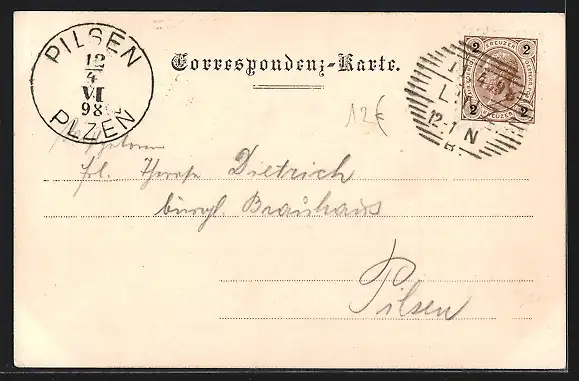 PILSEN
12
4
VI
98
PLZEŇ
Correspondenz-Karte.
2 KREUZER 2
2 KREUZER 2
4.98
L
12-1 N
B.
12€
frl. Dietrich
bürgl. Bräuhaus
Pilsen